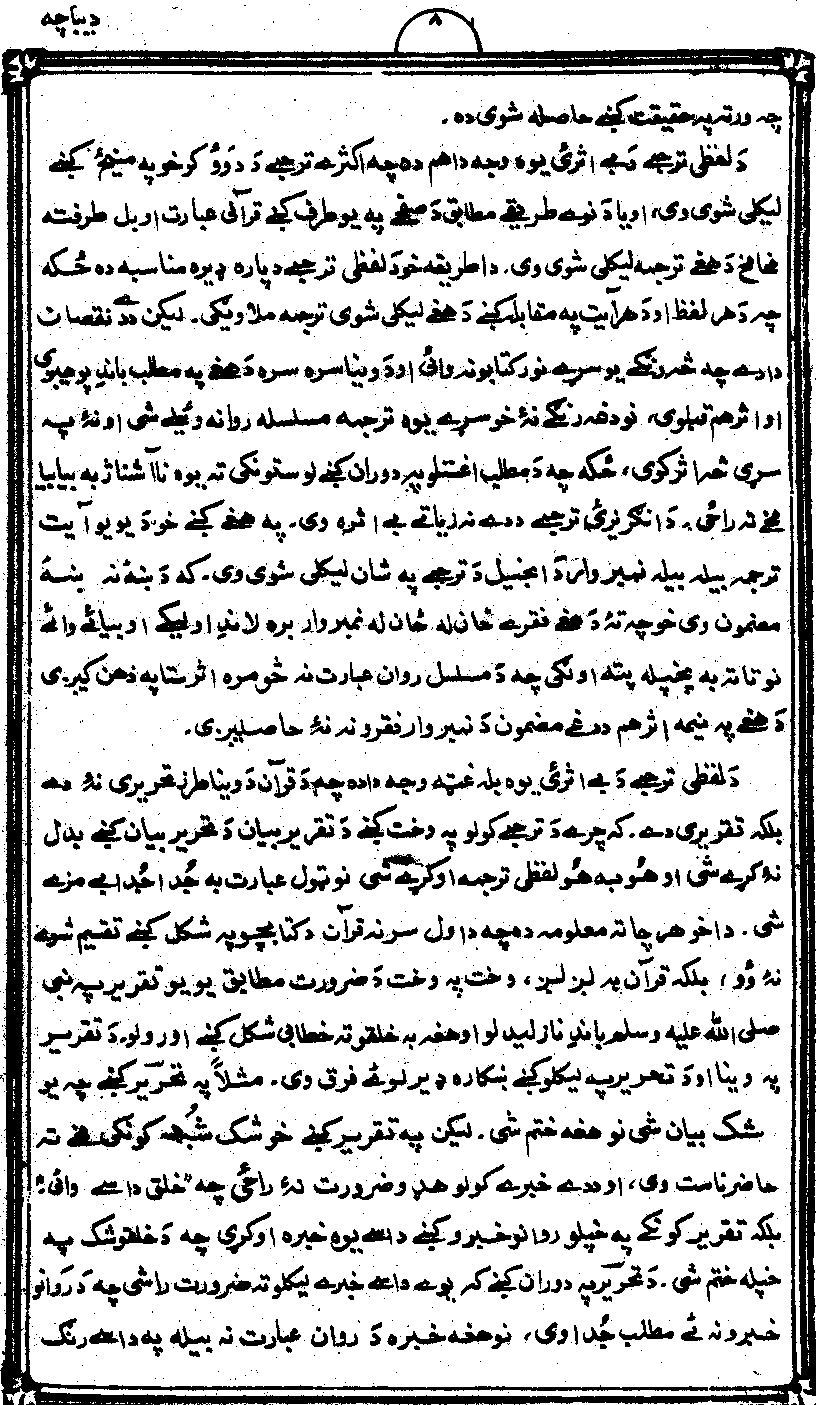 دیباچه
۸
چه ورته په حقیقت کښې حاصله شوې ده .
دَ لفظی ترجمې دَ بې اثرئ یوه وجه دا هم ده چه اکثرې ترجمې دَ دَوؤ کرښو په مینځ کښې
لیکلی شوی وی، او یا دَ نوے طریقے مطابق دَ صفحے په یو طرف کښې قرآنی عبارت او بل طرفته
مخامخ دَ هغے ترجمه لیکلی شوی وی. دا طریقه خو دَ لفظی ترجمے دپاره ډیره مناسبه ده ځکه
چه دَ هر لفظ او دَ هر آیت په مقابله کښے دَ هغے لیکلی شوی ترجمه ملاویږی. لیکن دے نقصان
دا دے چه څه رنګے یو سړے نور کتابونه وائی او دَ وینا سره سره دَ هغے په مطلب باندِ پوهیږی
او اثر هم قبلوی، نو دغه رنګے نۀ خو سړے یوه ترجمه مسلسله روانه وئیلے شی او نۀ په
سړی څه اثر کوی، ځکه چه دَ مطلب اغستلو په دوران کښے لوستونکی ته یوه ناآشنا ژبه بیا بیا
مخے ته راځی. دَ انګریزئ ترجمے ددے نه زیاتے بے اثره وی. په هغے کښے خو دَ یو یو آیت
ترجمه بیله بیله نمبروار دَ انجیل دَ ترجمے په شان لیکلی شوی وی. که دَ ښۀ نه ښۀ
مضمون وی خو چه تۀ دَ هغے فقرے ځان له ځان له نمبروار بره لاندِ اولیکے او بیا ئے وائے
نو تا ته به پخپله پته اولګی چه دَ مسلسل روان عبارت نه څومره اثر ستا په ذهن کیږی
دَ هغے په نیمه اثر هم دَ دغے مضمون دَ نمبروار فقرو نه نۀ حاصلیږی.
دَ لفظی ترجمے دَ بے اثرئ یوه بله غټه وجه دا ده چه دَ قرآن دَ وینا طرز تحریری نۀ دے
بلکه تقریری دے. که چرے دَ ترجمے کولو په وخت کښے دَ تقریر بیان دَ تحریر بیان کښے بدل
نۀ کړے شی او هُو به هُو لفظی ترجمه اوکړے شی نو ټول عبارت به جُدا جُدا بے مزے
شی . دا خو هر چا ته معلومه ده چه داول سر نه قرآن دکتابچو په شکل کښے تقسیم شوے
نۀ ؤو ، بلکه قرآن په لږ لږ، وخت په وخت دَ ضرورت مطابق یو یو تقریر په نبی
صلی الله علیه وسلم باندِ نازلیدلو او هغه به خلقو ته خطابی شکل کښے اورولو. دَ تقریر
په وینا او دَ تحریر په لیکلو کښے ښکاره ډیر لوئے فرق وی. مثلاً په تحریر کښے چه یو
شک بیان شی نو هغه ختم شی. لیکن په تقریر کښے خو شک شُبهه کونکی مخے ته
حاضر ناست وی، او ددے خبرے کولو هډو ضرورت نۀ راځی چه "خلق داسے وائی"،
بلکه تقریر کونکے په خپلو روانو خبرو کښے داسے یوه خبره اوکړی چه دَ خلقو شک په
خپله ختم شی. دَ تحریر په دوران کښے که یوے داسے خبرے لیکلو ته ضرورت راشی چه دَ روانو
خبرو نه ئے مطلب جُدا وی، نو هغه خبره دَ روان عبارت نه بیله په داسے رنګ